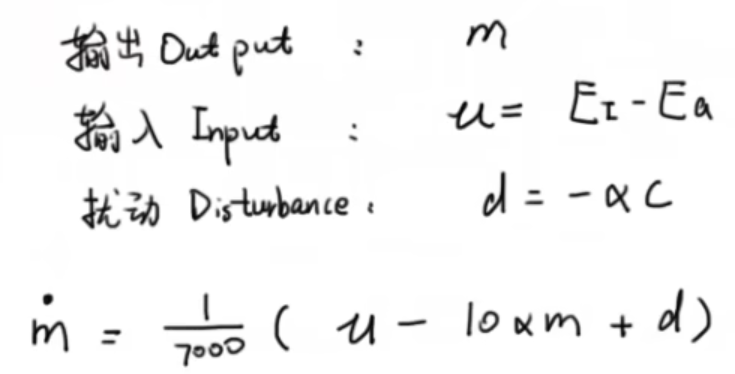 输出 Output : m
输入 Input : u = E_I - E_a
扰动 Disturbance : d = - α C
ṁ = 1/7000 ( u - 10 α m + d )